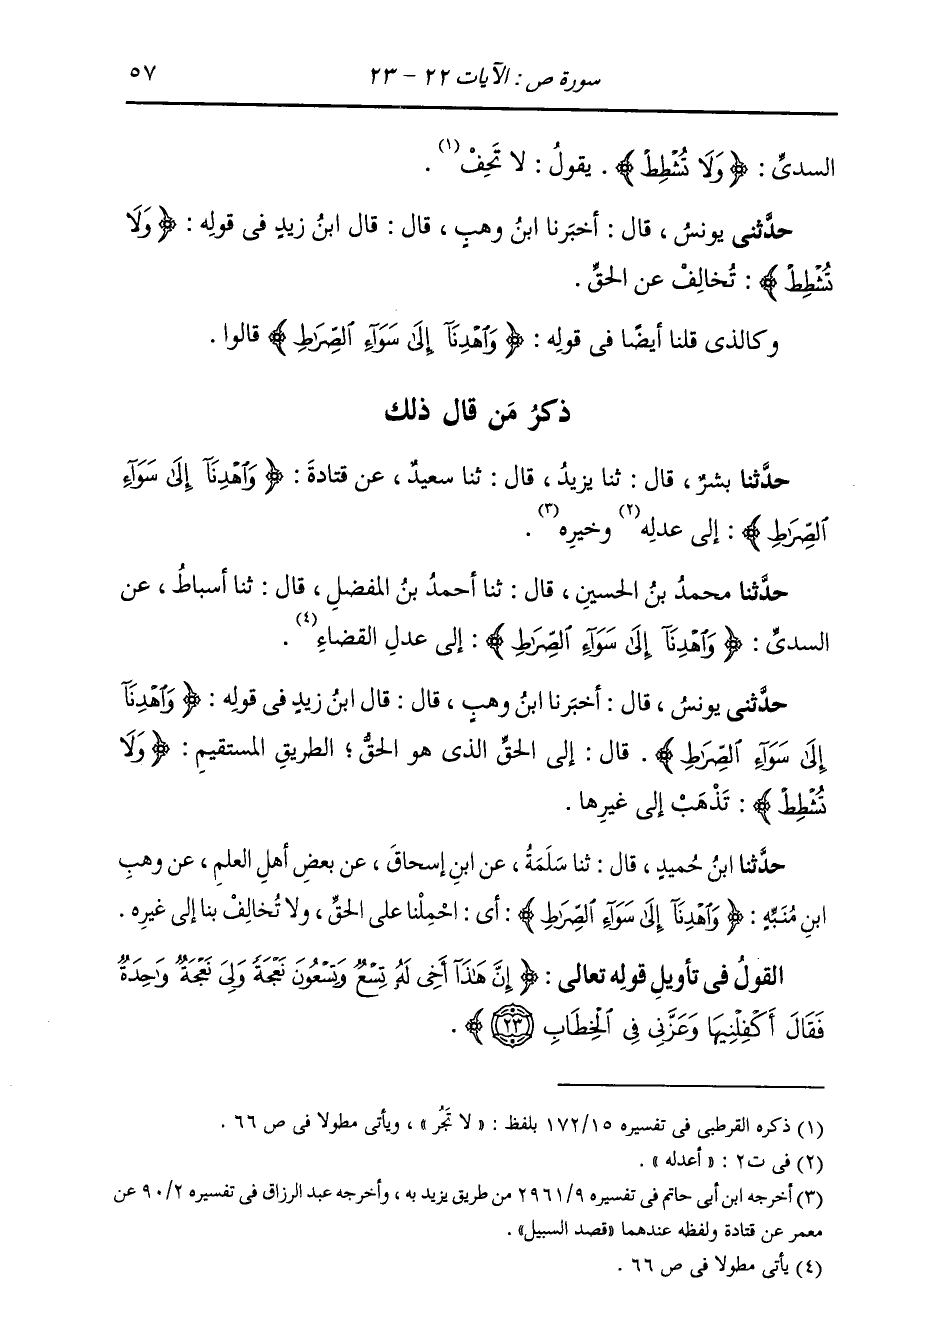 سورة ص : الآيات ٢٢ - ٢٣ ٥٧
السدىِّ : ﴿ وَلَا تُشْطِطْ ﴾ . يقولُ : لا تَحِفْ(١) .
حدَّثنى يونسُ ، قال : أخبَرنا ابنُ وهبٍ ، قال : قال ابنُ زيدٍ فى قولِه : ﴿ وَلَا
تُشْطِطْ ﴾ : تُخالِفْ عن الحقِّ .
وكالذى قلنا أيضًا فى قولِه : ﴿ وَٱهْدِنَآ إِلَىٰ سَوَآءِ ٱلصِّرَٰطِ ﴾ قالوا .
ذكرُ مَن قال ذلك
حدَّثنا بشرٌ ، قال : ثنا يزيدُ ، قال : ثنا سعيدٌ ، عن قتادةَ : ﴿ وَٱهْدِنَآ إِلَىٰ سَوَآءِ
ٱلصِّرَٰطِ ﴾ : إلى عدلِه(٢) وخيرِه(٣) .
حدَّثنا محمدُ بنُ الحسينِ ، قال : ثنا أحمدُ بنُ المفضلِ ، قال : ثنا أسباطُ ، عن
السدىِّ : ﴿ وَٱهْدِنَآ إِلَىٰ سَوَآءِ ٱلصِّرَٰطِ ﴾ : إلى عدلِ القضاءِ(٤) .
حدَّثنى يونسُ ، قال : أخبَرنا ابنُ وهبٍ ، قال : قال ابنُ زيدٍ فى قولِه : ﴿ وَٱهْدِنَآ
إِلَىٰ سَوَآءِ ٱلصِّرَٰطِ ﴾ . قال : إلى الحقِّ الذى هو الحقُّ ؛ الطريقِ المستقيمِ : ﴿ وَلَا
تُشْطِطْ ﴾ : تَذْهَبْ إلى غيرِها .
حدَّثنا ابنُ حُميدٍ ، قال : ثنا سَلَمَةُ ، عن ابنِ إسحاقَ ، عن بعضِ أهلِ العلمِ ، عن وهبِ
ابنِ مُنَبِّهٍ : ﴿ وَٱهْدِنَآ إِلَىٰ سَوَآءِ ٱلصِّرَٰطِ ﴾ : أى : احْمِلْنا على الحقِّ ، ولا تُخالِفْ بنا إلى غيرِه .
القولُ فى تأويلِ قولِه تعالى : ﴿ إِنَّ هَٰذَآ أَخِى لَهُۥ تِسْعٌ وَتِسْعُونَ نَعْجَةً وَلِىَ نَعْجَةٌ وَٰحِدَةٌ
فَقَالَ أَكْفِلْنِيهَا وَعَزَّنِى فِى ٱلْخِطَابِ ٢٣ ﴾ .
(١) ذكره القرطبى فى تفسيره ١٧٢/١٥ بلفظ : « لا تَجُر » ، ويأتى مطولا فى ص ٦٦ .
(٢) فى ت٢ : « أعدله » .
(٣) أخرجه ابن أبى حاتم فى تفسيره ٢٩٦١/٩ من طريق يزيد به ، وأخرجه عبد الرزاق فى تفسيره ٩٠/٢ عن
معمر عن قتادة ولفظه عندهما «قصد السبيل» .
(٤) يأتى مطولا فى ص ٦٦ .